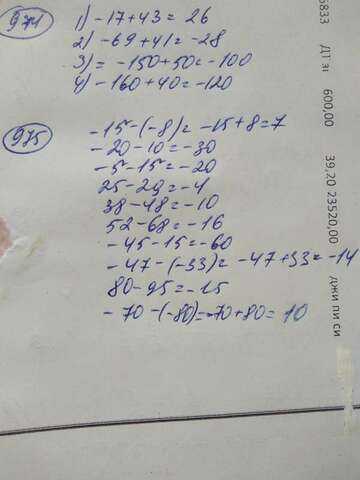 971
1) -17+43 = 26
2) -69+41 = -28
3) = -150+50 = -100
4) -160+40 = -120
975
-15-(-8) = -15+8 = 7
-20-10 = -30
-5-15 = -20
25-29 = -4
38-48 = -10
52-68 = -16
-45-15 = -60
-47-(-33) = -47+33 = -14
80-95 = -15
-70-(-80) = -70+80 = 10
600,00
39,20 23520,00
джи пи си